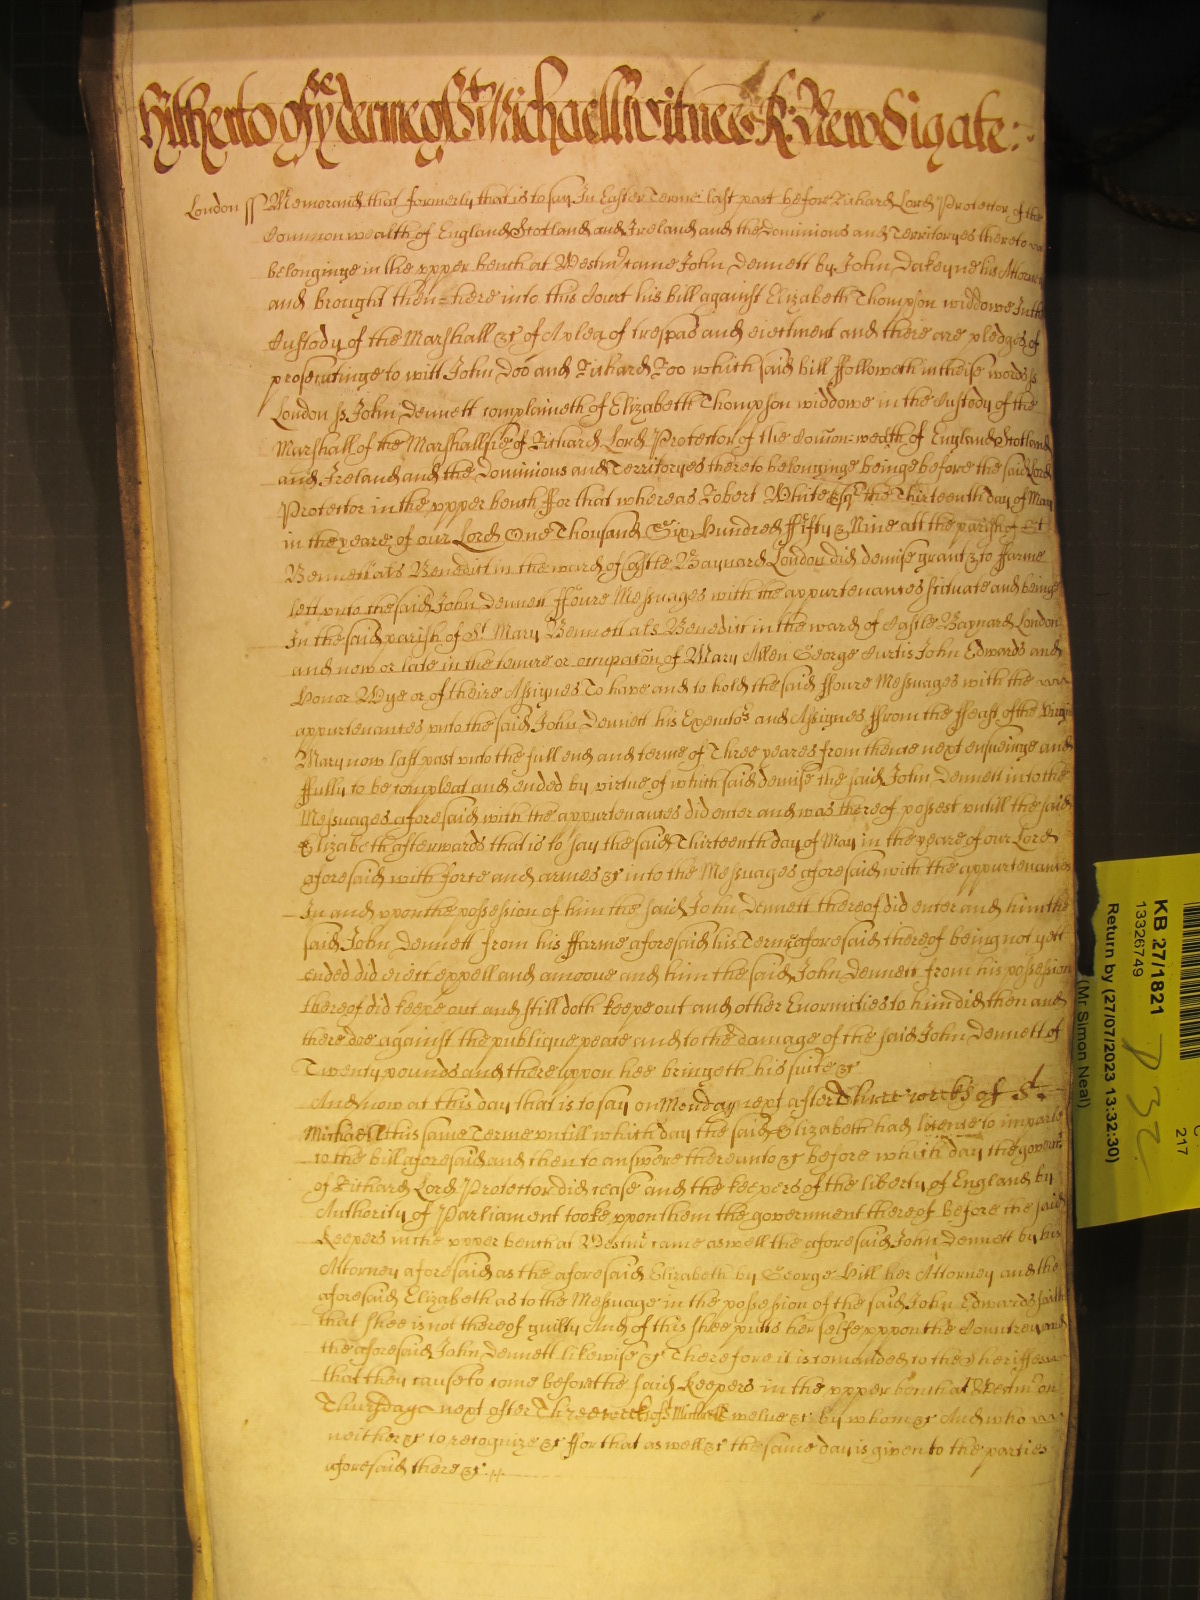 Hitherto of ye terme of St Michaell Witnes R: Newdigate:
London ss Memorand that formerly that is to say In Easter Terme last past before Richard Lord Protector of the
Common wealth of England Scotland and Ireland and the Dominions and Territoryes thereto
belonginge in the vpper bench at Westmr came John Dennett by John Dakeyne his Attorney
and brought then here into this Court his bill against Elizabeth Thompson widdowe In the
Custody of the Marshall &c of A plea of trespas and eiectment and there are pledges of
prosecutinge to witt John Doo and Richard Roo which said bill ffolloweth in theise words ss
London ss John Dennett complaineth of Elizabeth Thompson widdowe in the Custody of the
Marshall of the Marshallsie of Richard Lord Protector of the Comon-wealth of England Scotland
and Ireland and the Dominions and Territoryes thereto belonginge beinge before the said Lord
Protector in the vpper bench ffor that whereas Robert White Esqr the Thirteenth day of May
in the yeare of our Lord One Thousand Six Hundred ffifty & Nine att the parish of St
Bennett als Benedict in the ward of Castle Baynard London did demise grant & to ffarme
lett vnto the said John Dennett ffoure Messuages with the appurtenances scituate and beinge
In the said parish of St Mary Bennett als Benedict in the ward of Castle Baynard London
and now or late in the tenure or occupacon of Mary Allen George Curtis John Edwards and
Honor Wye or of theire Assignes To have and to hold the said ffoure Messuages with the
appurtenances vnto the said John Dennett his Executors and Assignes ffrom the ffeast of the Virgin
Mary now last past vnto the full end and terme of Three yeares from thence next ensueinge and
ffully to be compleat and ended by virtue of which said demise the said John Dennett into the
Messuages aforesaid with the appurtenances did enter and was thereof possest vntill the said
Elizabeth afterwards that is to say the said Thirteenth day of May in the yeare of our Lord
aforesaid with force and armes &c into the Messuages aforesaid with the appurtenances
In and vpon the possession of him the said John Dennett thereof did enter and him the
said John Dennett from his ffarme aforesaid his Terme aforesaid thereof being not yett
ended did eiect expell and amoove and him the said John Dennett from his possession
thereof did keepe out and still doth keepe out and other Enormities to him did then and
there doe against the publique peace and to the damage of the said John Dennett of
Twenty pounds and therevpon hee bringeth his suite &c
And now at this day that is to say on Monday next after three weeks of St
Michaell this same Terme vntill which day the said Elizabeth had licence to imparle
to the bill aforesaid and then to answere therevnto &c before which day the governmt
of Richard Lord Protector did cease and the keepers of the liberty of England by
Authority of Parliament tooke vpon them the government thereof before the said
Keepers in the vpper bench at Westmr came aswell the aforesaid John Dennett by his
Attorney aforesaid as the aforesaid Elizabeth by George Hill her Attorney and the
aforesaid Elizabeth as to the Messuage in the possession of the said John Edwards saith
that shee is not thereof guilty And of this shee putts her selfe vppon the Countrey and
the aforesaid John Dennett likewise &c Therefore it is comanded to the sheriffes
that they cause to come before the said keepers in the vpper bench at Westmr on
Thursday next after Three weeks of St Michaell Twelve &c by whom &c And who
neither &c to recognize &c ffor that aswell &c the same day is given to the parties
aforesaid there &c
KB 27/1821
13326749
Return by (27/07/2023 13:32:30)
(Mr Simon Neal)
217